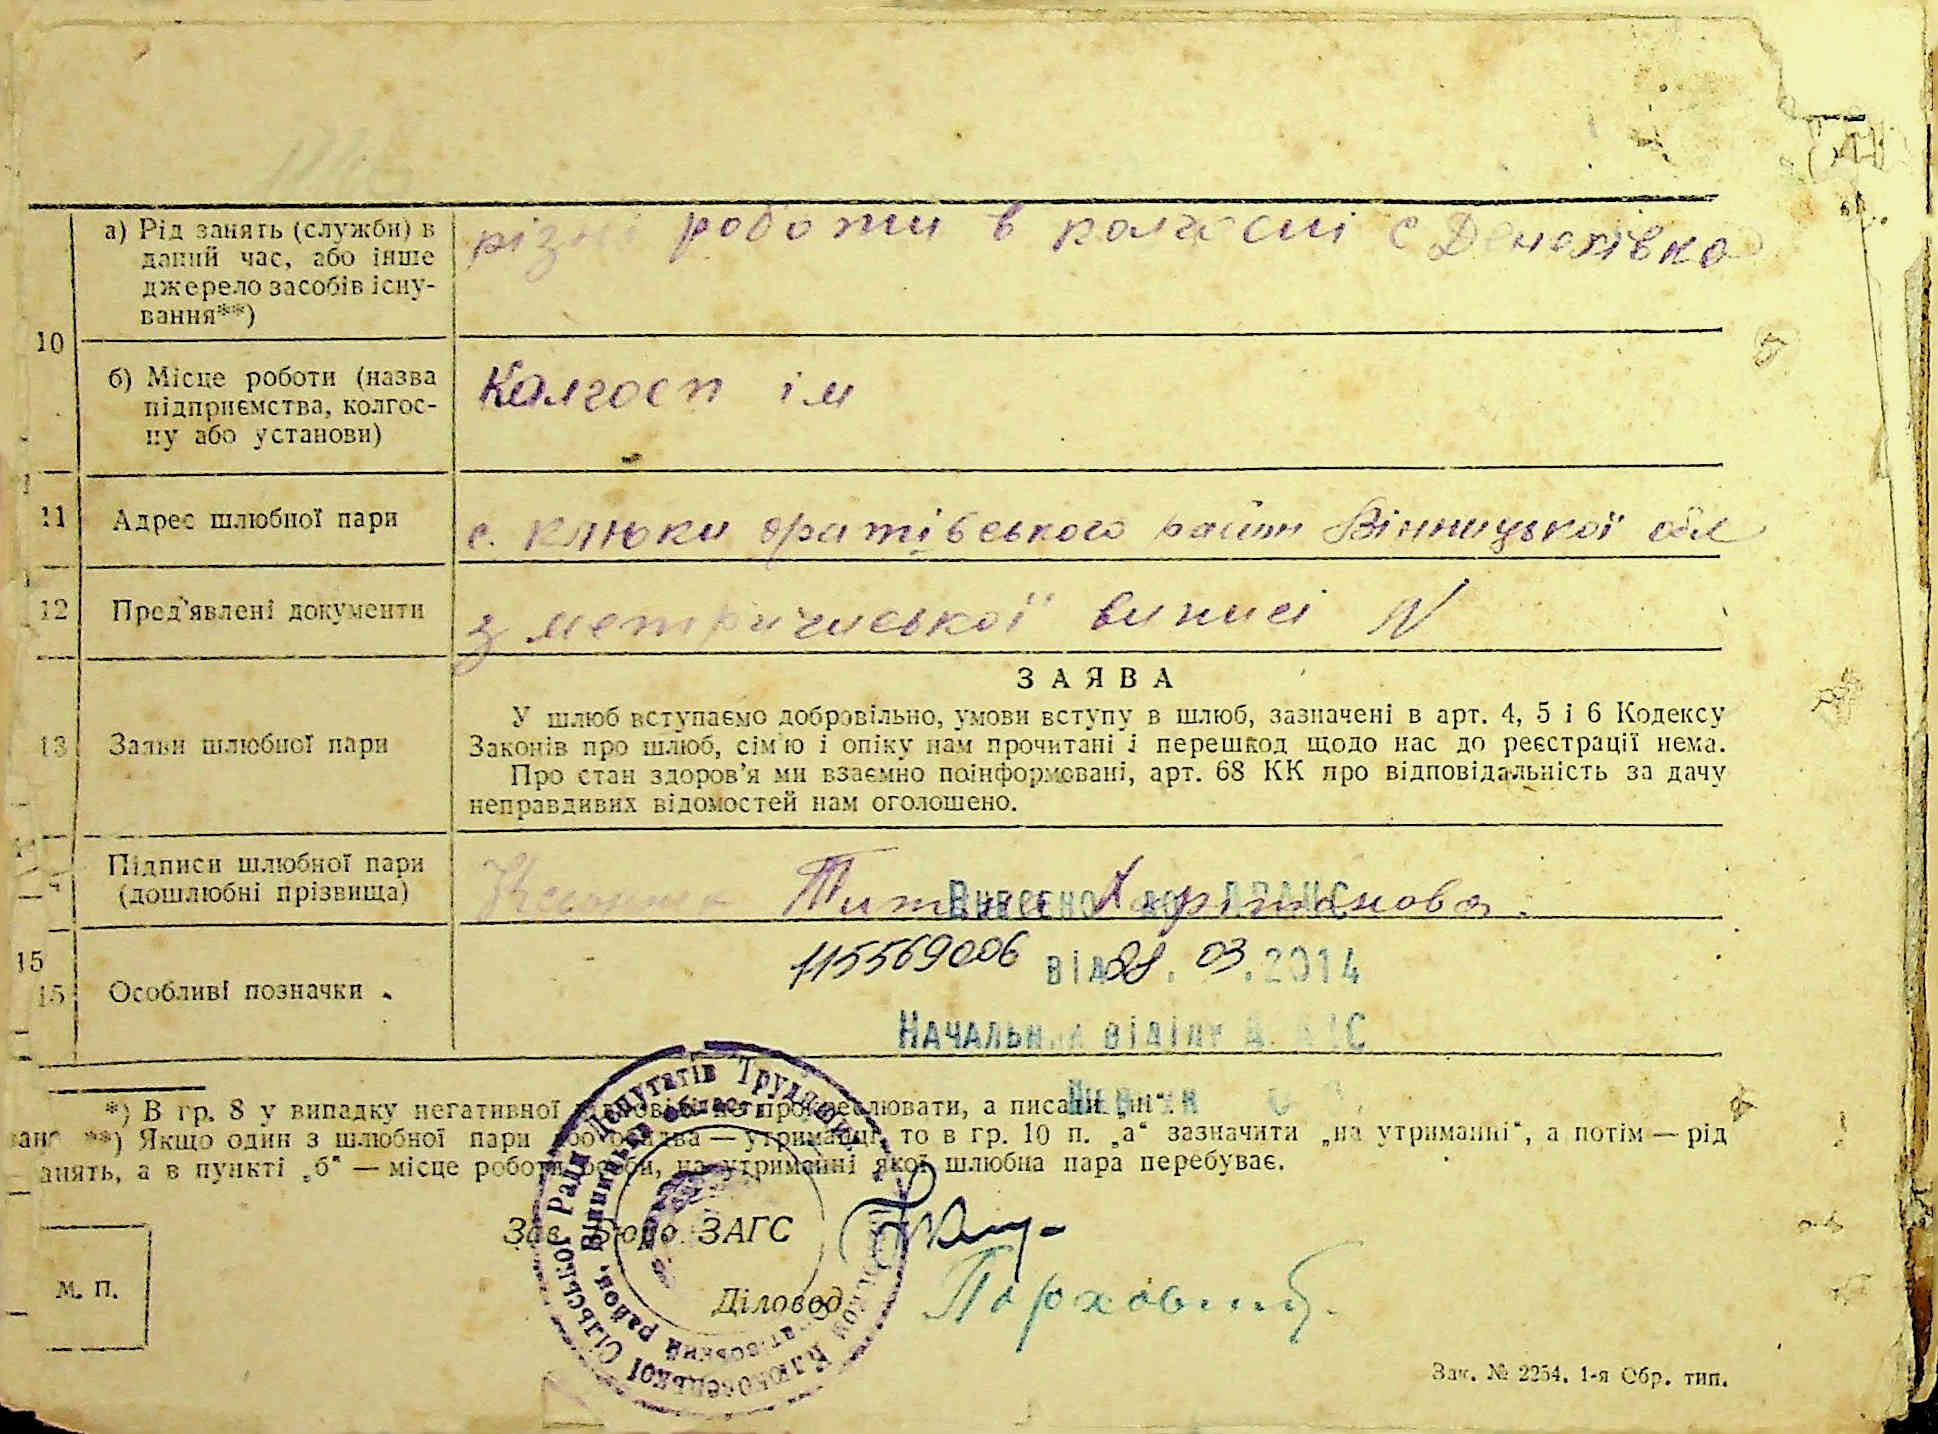 а) Рід занять (служби) в
даний час, або інше
джерело засобів існу-
вання**)
різні роботи в колгоспі с
10
б) Місце роботи (назва
підприємства, колгос-
пу або установи)
Колгосп ім
11
Адрес шлюбної пари
с. Клюки оратівського район Вінницької обл
12
Пред'явлені документи
з метричиської виписі N
13
Заяви шлюбної пари
ЗАЯВА
У шлюб вступаємо добровільно, умови вступу в шлюб, зазначені в арт. 4, 5 і 6 Кодексу
Законів про шлюб, сім'ю і опіку нам прочитані і перешкод щодо нас до реєстрації нема.
Про стан здоров'я ми взаємно поінформовані, арт. 68 КК про відповідальність за дачу
неправдивих відомостей нам оголошено.
Підписи шлюбної пари
(дошлюбні прізвища)
Внесено
15
15
Особливі позначки
115569006 від 28.03.2014
Начальник відділу
*) В гр. 8 у випадку негативної прокреслювати, а писати „ні“.
**) Якщо один з шлюбної пари або обидва — утриманці, то в гр. 10 п. „а“ зазначити „на утриманні“, а потім — рід
анять, а в пункті „б“ — місце роботи особи, на утриманні якої шлюбна пара перебуває.
Депутатів Трудящих
Сільської Ради
Вінницька область
район,
Зав. Бюро ЗАГС
М. П.
Діловод
Зак. № 2254. 1-я Обр. тип.